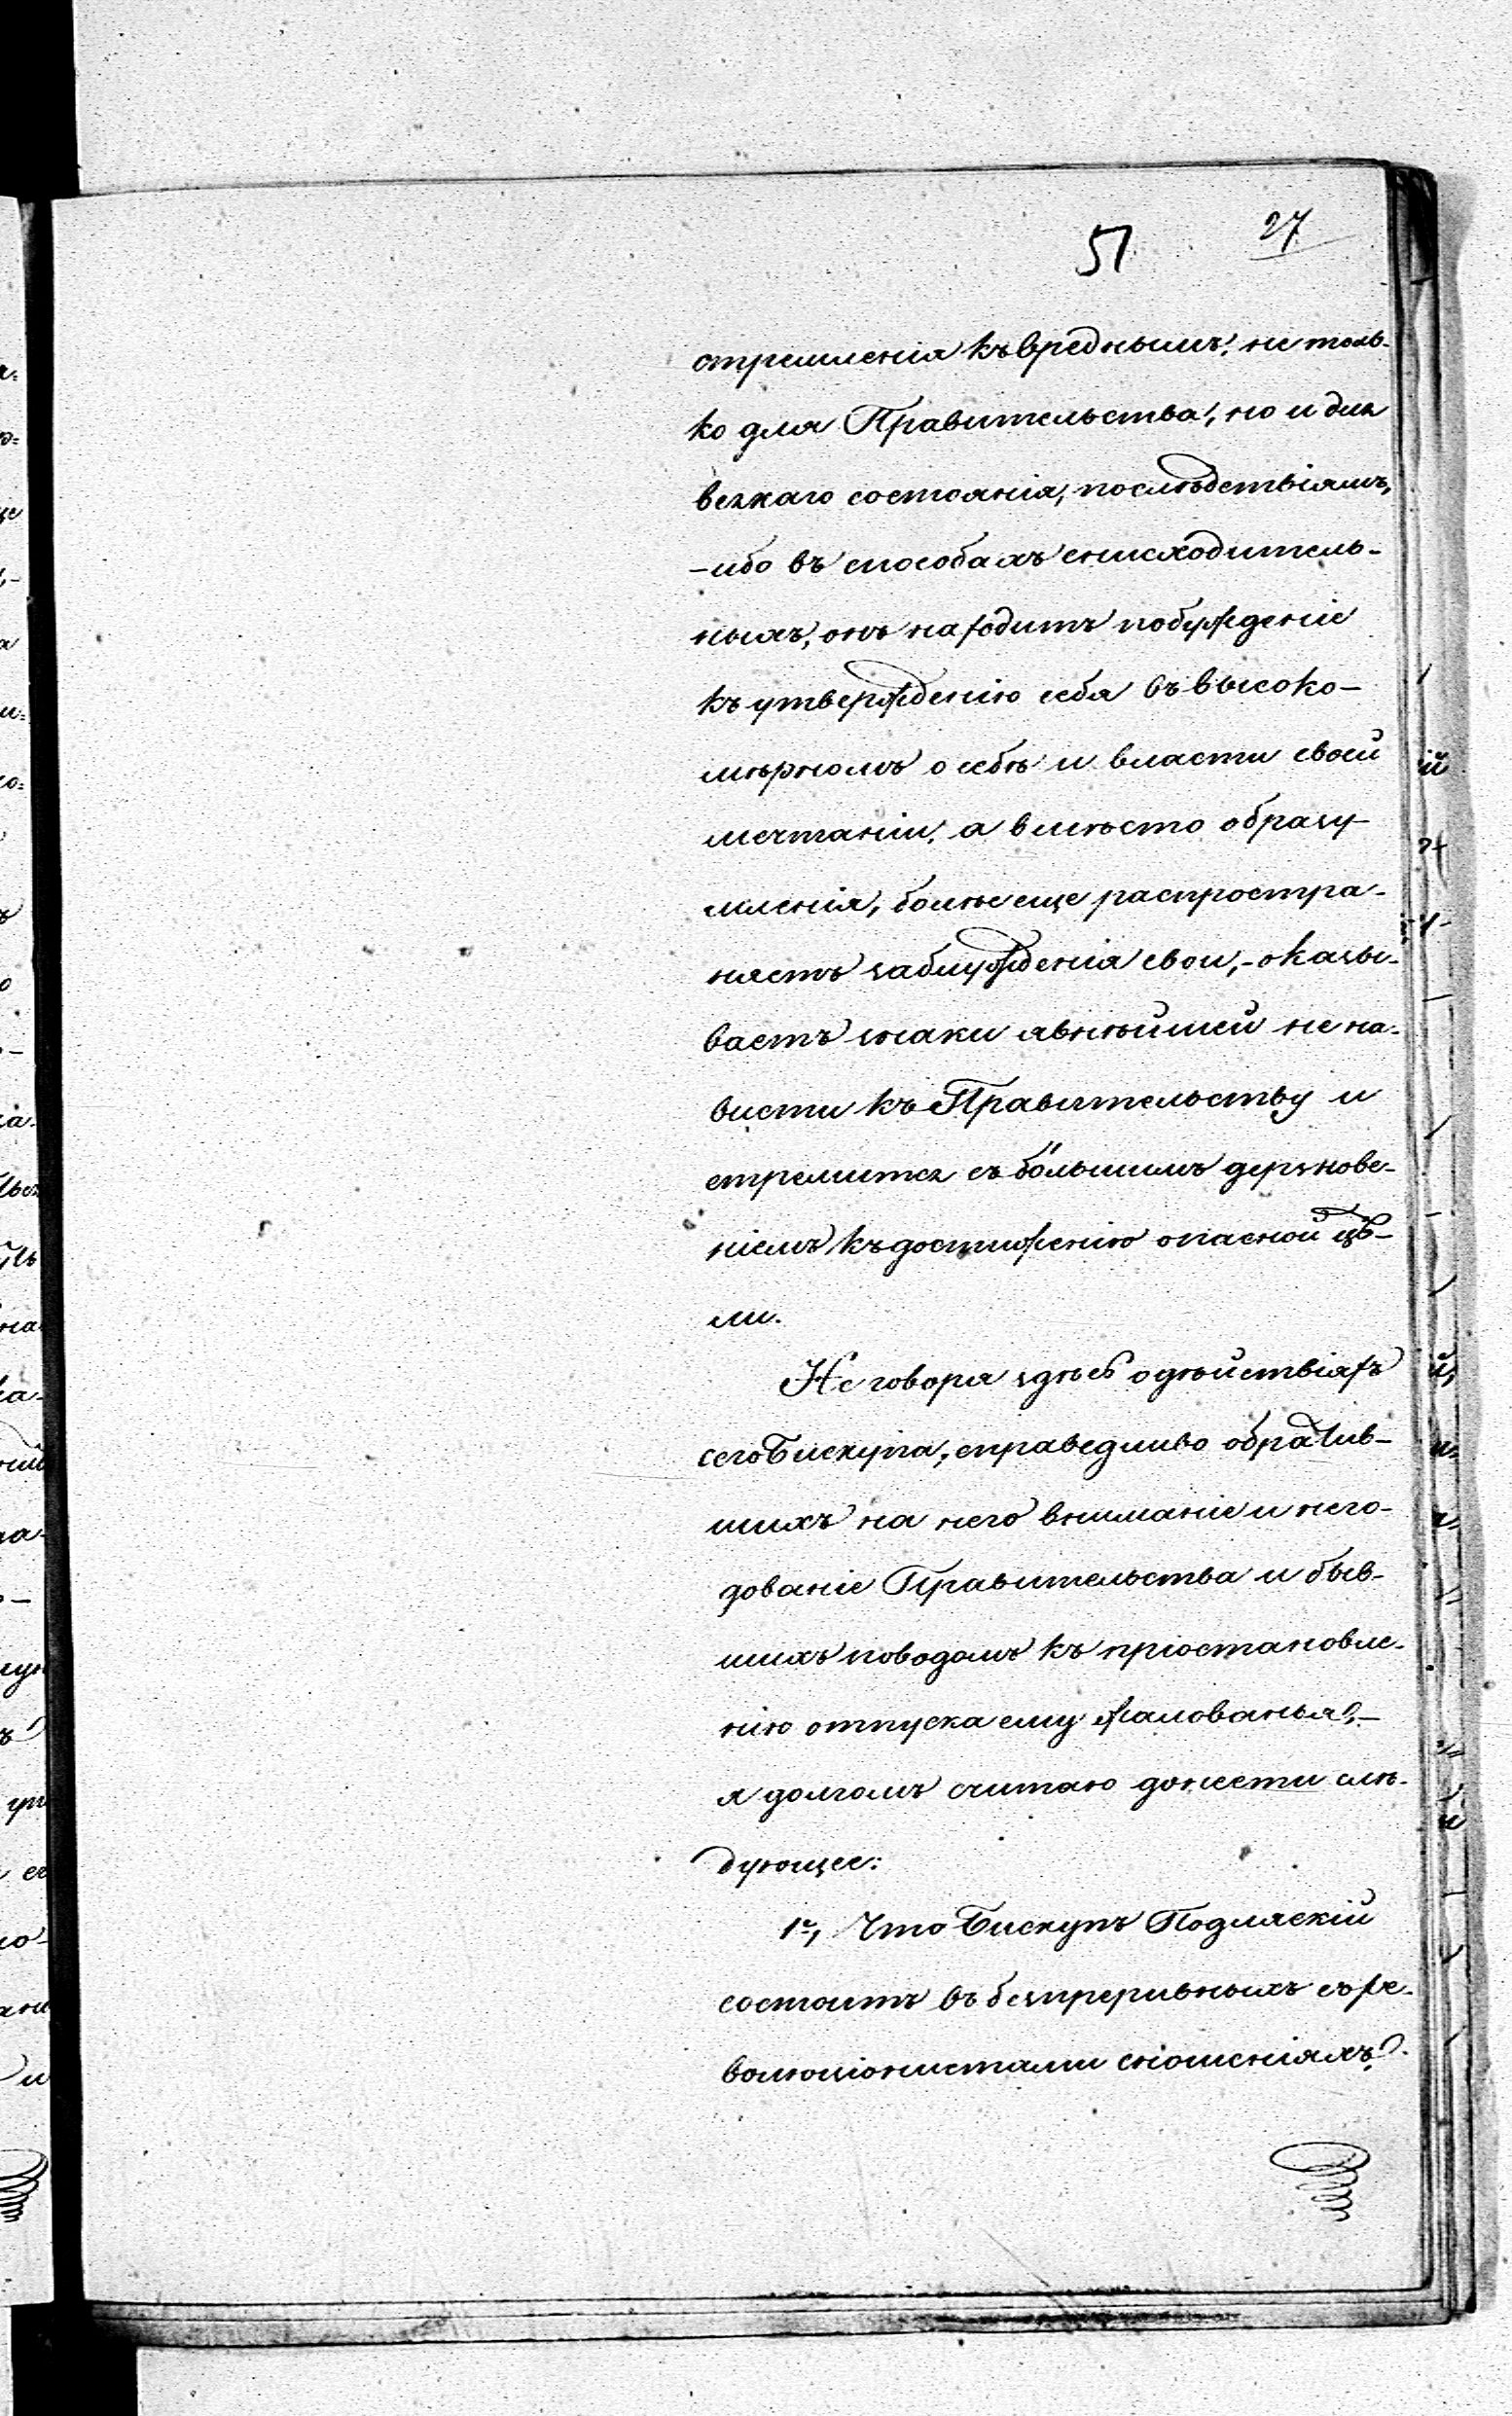 51 27
стремленія къ вреднымъ, не толь-
ко для Правительства, но и для
всякаго состоянія, послѣдствіямъ,
-ибо въ способахъ снисходитель-
ныхъ, онъ находитъ побужденіе
къ утвержденію себя въ высоко-
мѣрномъ о себѣ и власти своей
мечтаніи, а вмѣсто образу-
мленія, болѣе еще распростра-
няетъ заблужденія свои,-оказы-
ваетъ знаки явнѣйшей нена-
висти къ Правительству и
стремится съ большимъ дерзнове-
ніемъ къ достиженію опасной цѣ-
ли.
Не говоря здѣсь о дѣйствіяхъ
сего Бискупа, справедливо обратив-
шихъ на него вниманіе и него-
дованіе Правительства и быв-
шихъ поводомъ къ пріостановле-
нію отпуска ему жалованья,-
я долгомъ считаю донести слѣ-
дующее:
1е, Что Бискупъ Подляскій
состоитъ въ безпрерывныхъ съ ре-
волюціонистами сношеніяхъ.